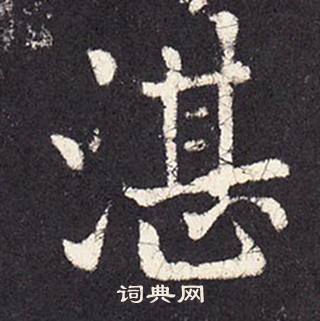 湛
词典网